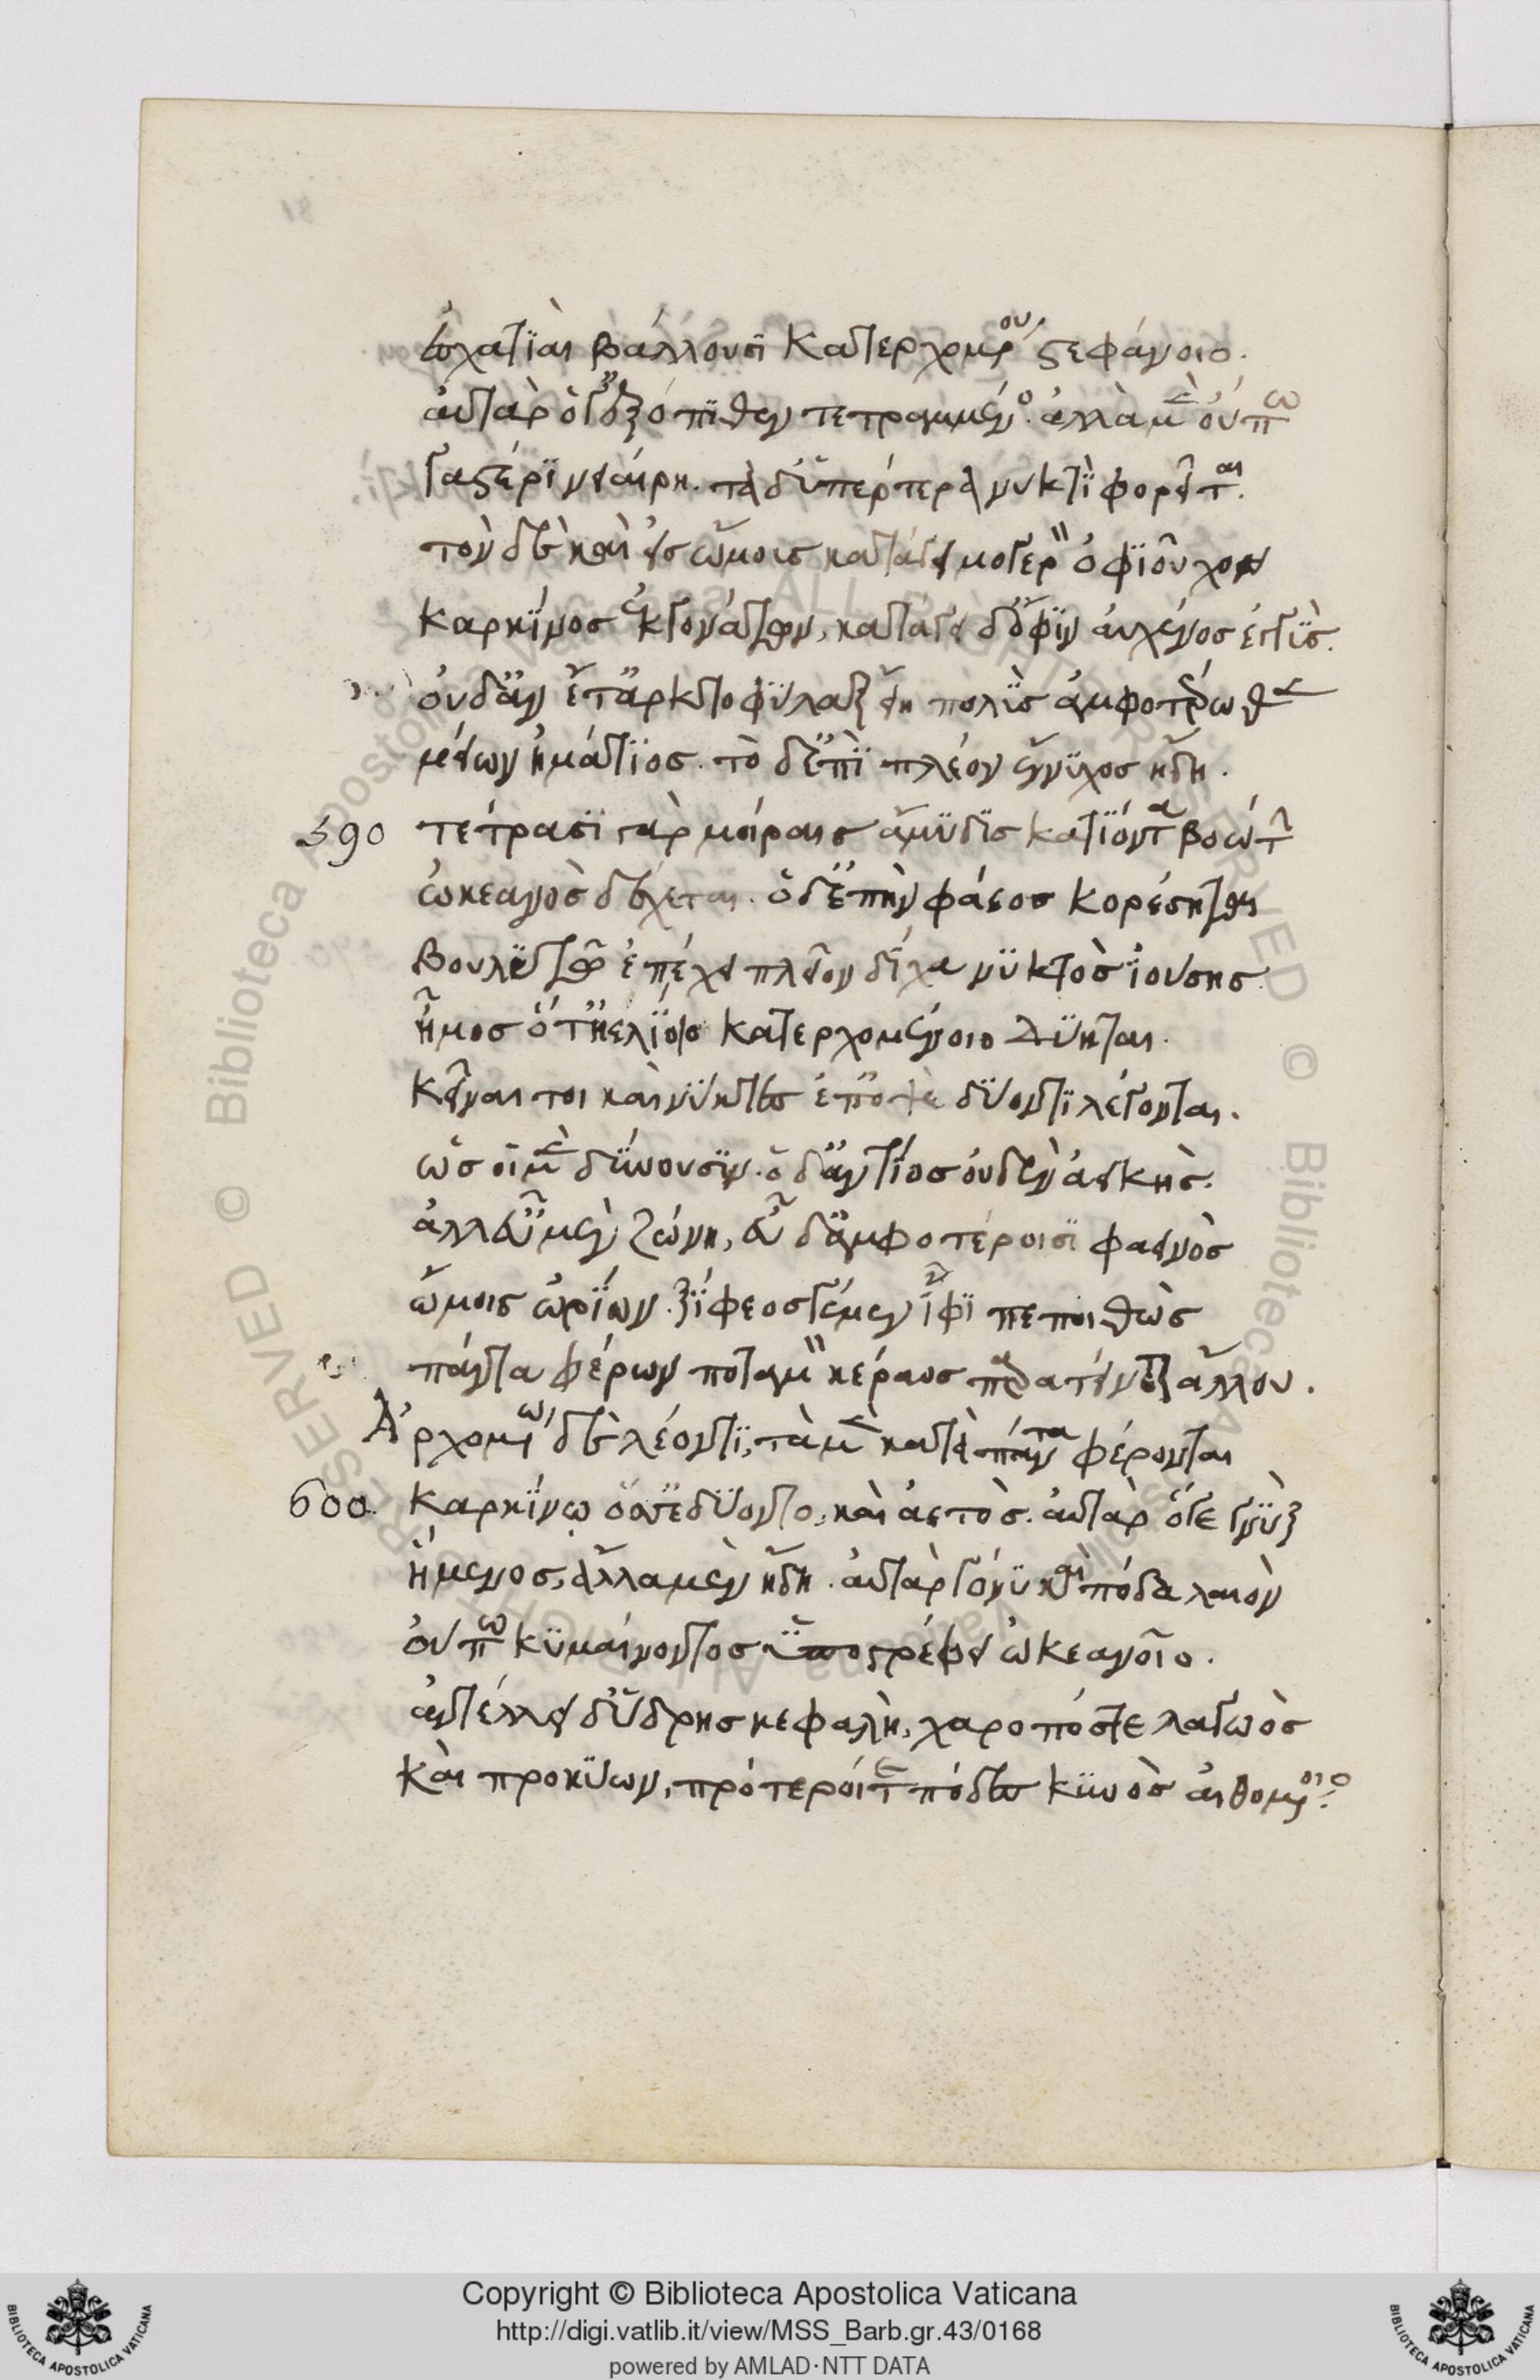 ἐσχατιαὶ βάλλουσι κατερχομένου στεφάνοιο.
αὐτὰρ ὅγ' ἐξόπιθεν τετραμμένος. ἀλλὰ μὲν οὔπω
γαστέρι νειαίρη. τὰ δ' ὑπέρτερα νυκτὶ φορεῖται.
τὸν δὲ καὶ εἰς ὤμους κατάγει μογερὸν ὀφιοῦχον
καρκίνος ἐκ γονάτων, κατάγει δ' ὄφιν αὐχένος ἐγγύς.
οὐδ' ἂν ἔτ' ἀρκτοφύλαξ εἴη πολὺς ἀμφοτέρωθεν
μείων ἡμάτιος. τὸ δ' ἐπὶ πλέον ἔννυχος ἤδη.
590 τέτρασι γὰρ μοίραις ἄμυδις κατιόντα βοώτην
ὠκεανὸς δέχεται. ὁ δ' ἐπὴν φάεος κορέσηται
βουλυτῷ ἐπέχει πλεῖον δίχα νυκτὸς ἰούσης
ἦμος ὅτ' ἠελίοιο κατερχομένοιο δύηται.
κεῖναι τοι καὶ νύκτες ἐπ' ὀψὲ δύοντι λέγονται.
ὣς οἱ μὲν δύνουσιν. ὁ δ' ἀντίος οὐδὲν ἀεικὴς.
ἀλλ' εὖ μὲν ζώνη, εὖ δ' ἀμφοτέροισι φαεινὸς
ὤμοις ὠρίων. ξίφεος γε μὲν ἶφι πεποιθὼς
πάντα φέρων ποταμὸν κέραος παρατείνεται ἄλλου.
Ἀρχομένω δὲ λέοντι, τὰ μὲν κατὰ πάντα φέρονται
600. καρκίνω ὅσ' ἐδύοντο, καὶ ἀετὸς. αὐτὰρ ὅγε γνὺξ
ἥμενος, ἄλλα μὲν ἤδη. αὐτὰρ γόνυ καὶ πόδα λαιὸν
οὔπω κυμαίνοντος ὑποστρέφει ὠκεανοῖο.
ἀντέλλει δ' ὕδρης κεφαλὴ, χαροπός τε λαγωὸς
καὶ προκύων, πρότεροί τε πόδες κυνὸς αἰθομένοιο.
Copyright © Biblioteca Apostolica Vaticana
http://digi.vatlib.it/view/MSS_Barb.gr.43/0168
powered by AMLAD·NTT DATA